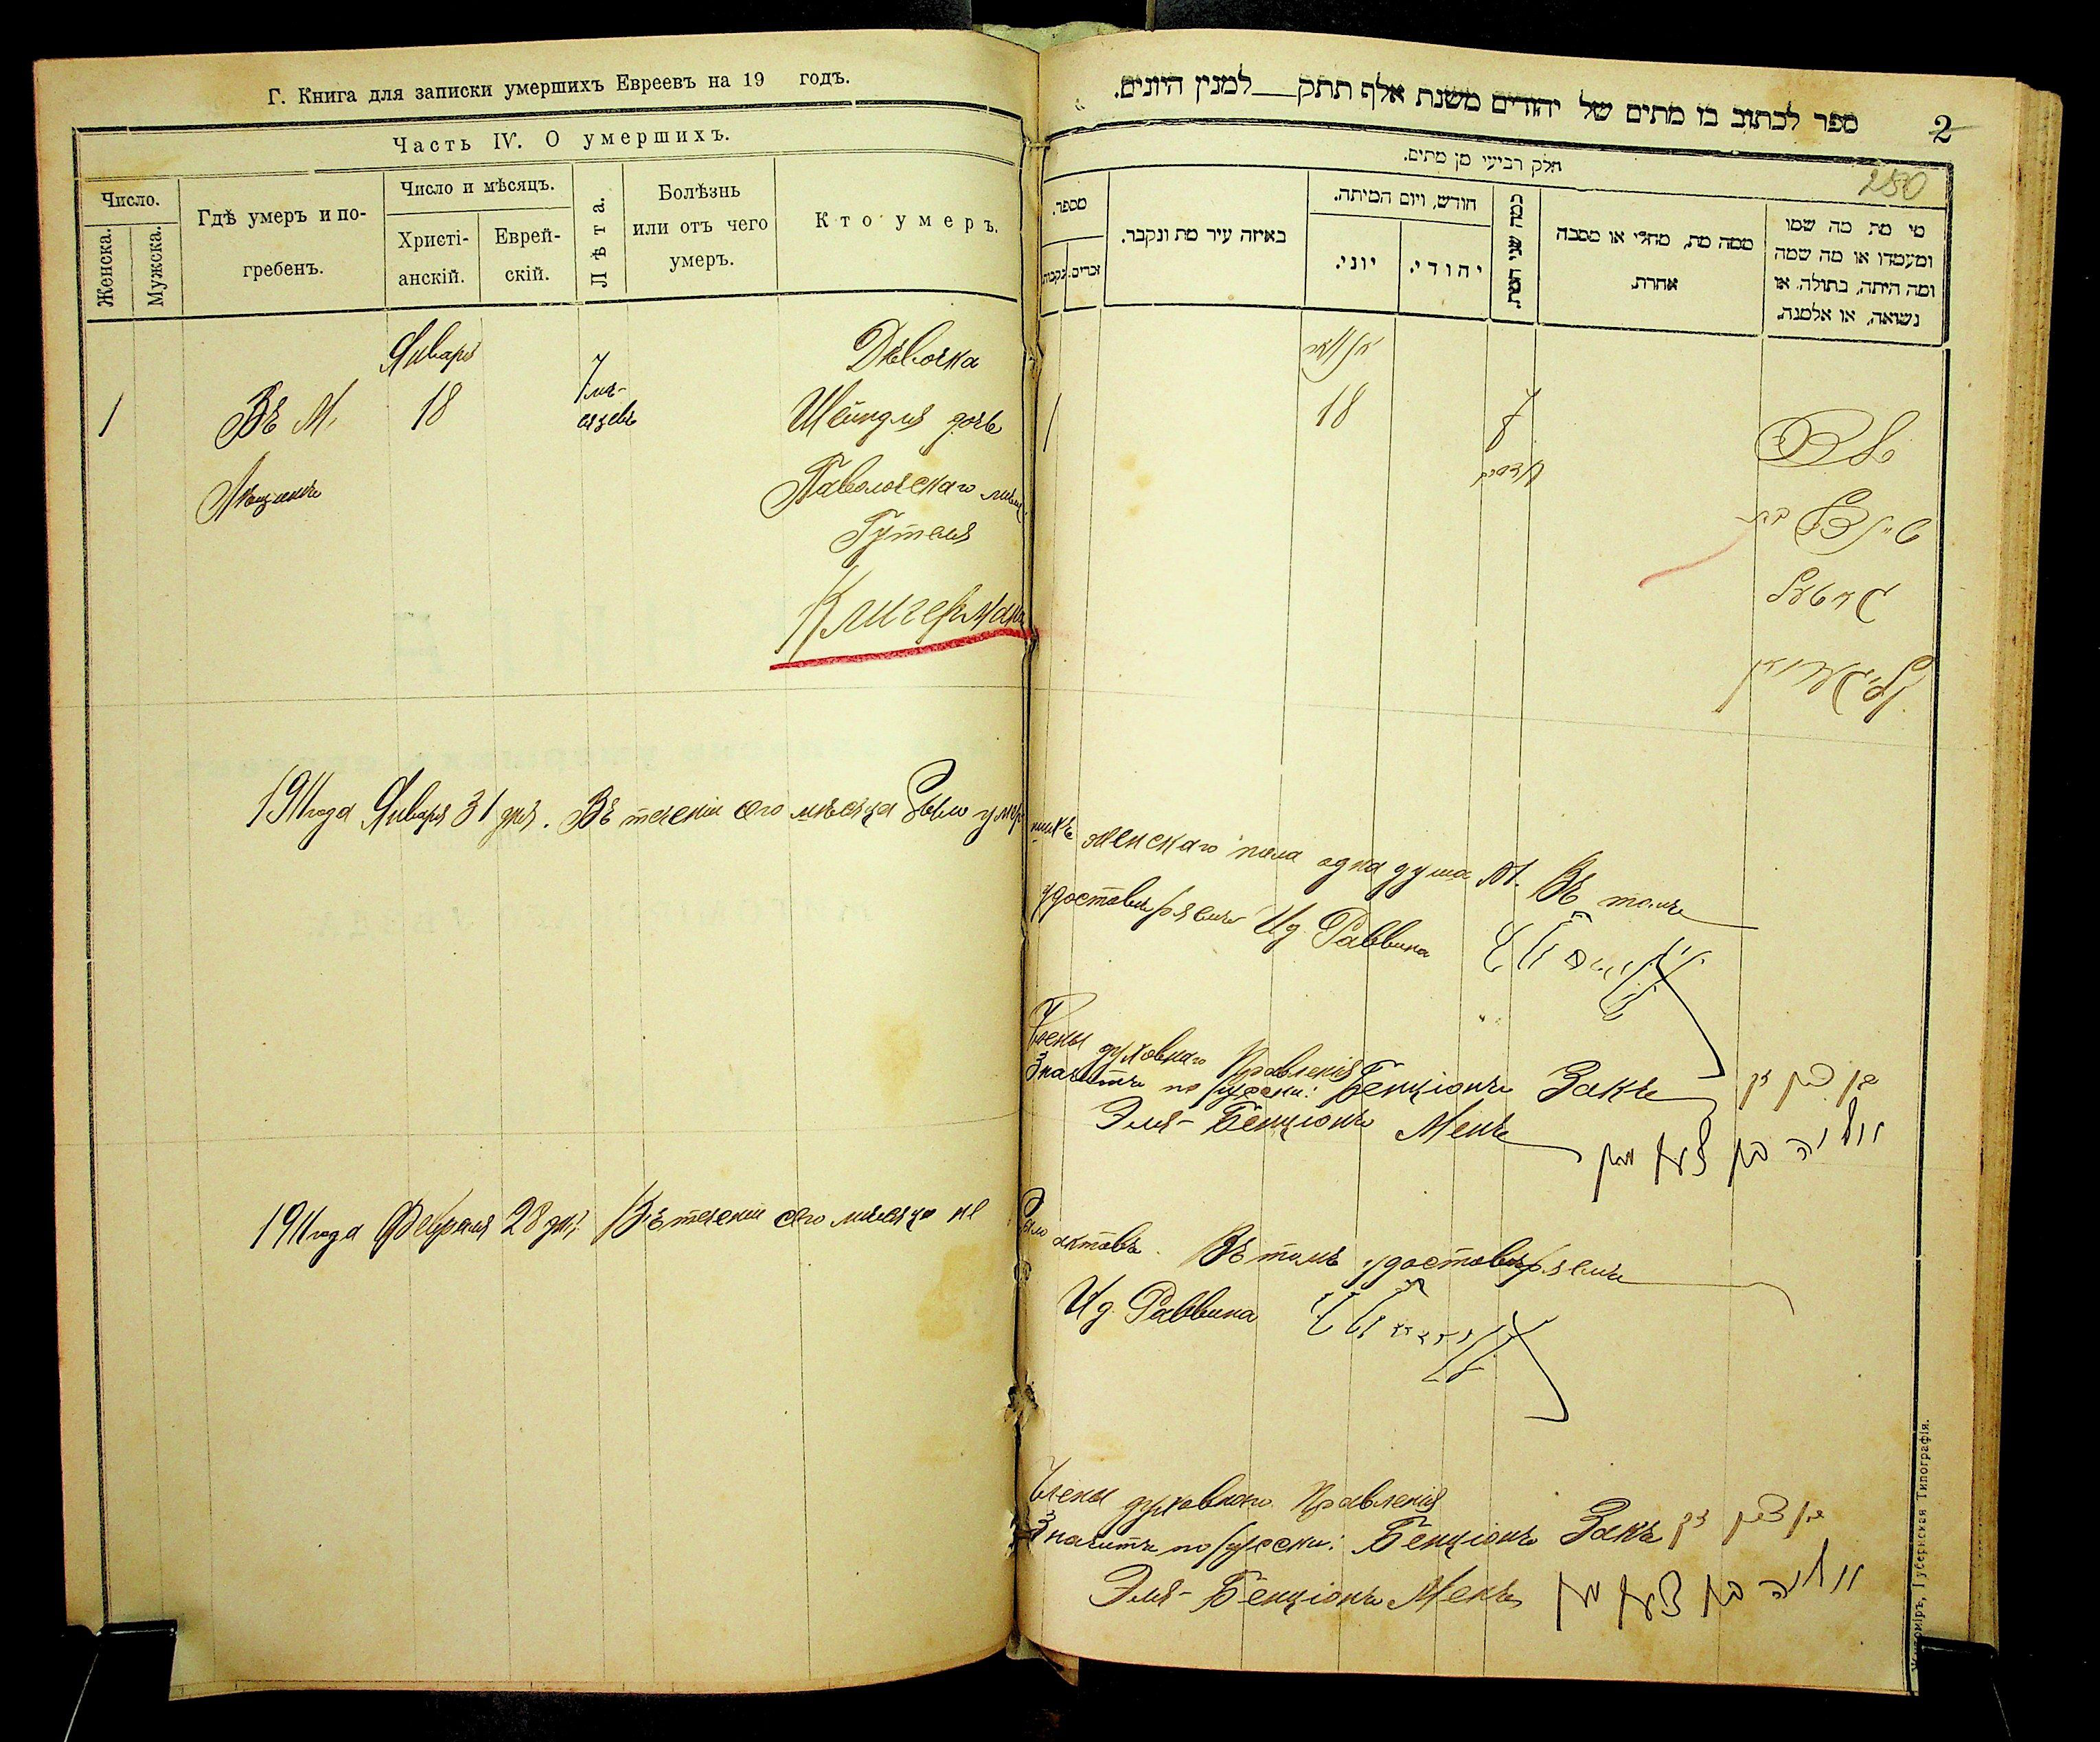 Г. Книга для записки умершихъ Евреевъ на 19 годъ.
Часть IV. О умершихъ.
Число.
Женска.
Мужска.
Гдѣ умеръ и по-
гребенъ.
Число и мѣсяцъ.
Христі-
анскій.
Еврей-
скій.
Лѣта.
Болѣзнь
или отъ чего
умеръ.
Кто умеръ.
Январь
Дѣвочка
1
Въ М.
18
7 мѣ-
сяцевъ
Шейндля дочь
Паволочскаго мѣщ.
Гутмана
Клигермана
1911 года Января 31 дня. Въ теченіи сего мѣсяца было умер
1911 года Февраля 28 дня Въ теченіи сего мѣсяца не
ספר לכתוב בו מתים של יהודים משנת אלף תתק__למנין היונים.
2
חלק רביעי מן מתים.
280
מספר.
נקבות.
זכרים.
באיזה עיר מת ונקבר.
חודש, ויום המיתה.
יוני.
יהודי.
כמה שני המת.
ממה מת, מחלי או מסבה
אחרת.
מי מת מה שמו
ומעמדו או מה שמה
ומה היתה, בתולה או
נשואה, או אלמנה.
יאנואר
1
18
7
חדשים
שיינדל בת
קליגערמאן
шихъ женскаго пола одна душа М. Въ томъ
удостовѣряемъ И д. Раввина
Члены духовнаго Правленія
Значитъ по русски: Бенціонъ Закъ
בן ציון זק
Эля-Бенціонъ Менъ
было актовъ. Въ томъ удостовѣряемъ
И д. Раввина
Члены духовнаго Правленія
Значитъ по русски: Бенціонъ Закъ
בן ציון זק
Эля-Бенціонъ Менъ
Житоміръ, Губернская Типографія.